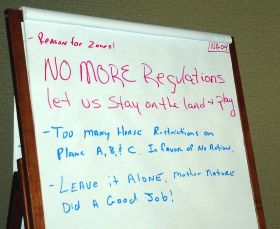 - Reason for Zones!
NO MORE Regulations
let us stay on the land + play
- Too many Horse Restrictions on
Plans A, B, & C. In favor of No Action.
- LEAVE it ALONE, Mother Nature
Did A Good Job!